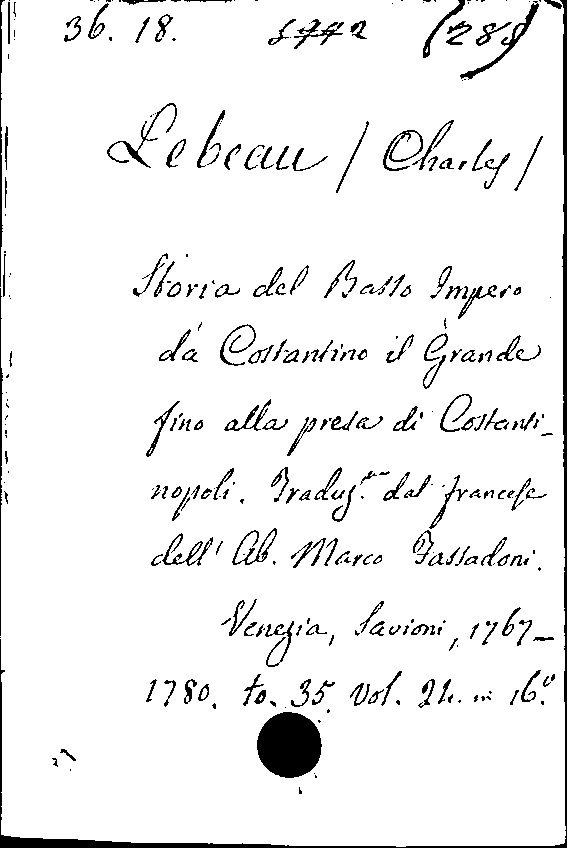 36. 18. 5742 (285)
Lebeau / Charles /
Storia del Basso Impero
da Costantino il Grande
fino alla presa di Costanti-
nopoli. Traduz.ne dal francese
dell' Ab. Marco Fassadoni.
Venezia, Savioni, 1767-
1780. to. 35. vol. 24. in 16.o